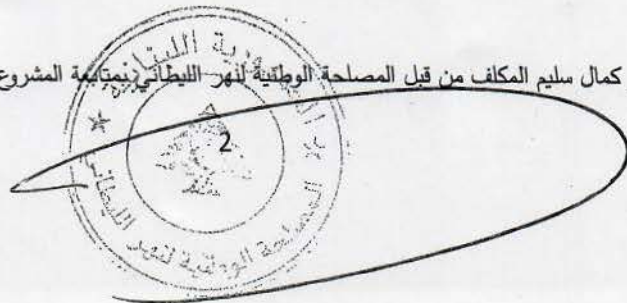 كمال سليم المكلف من قبل المصلحة الوطنية لنهر الليطاني بمتابعة المشروع
2
الجمهورية اللبنانية
المصلحة الوطنية لنهر الليطاني